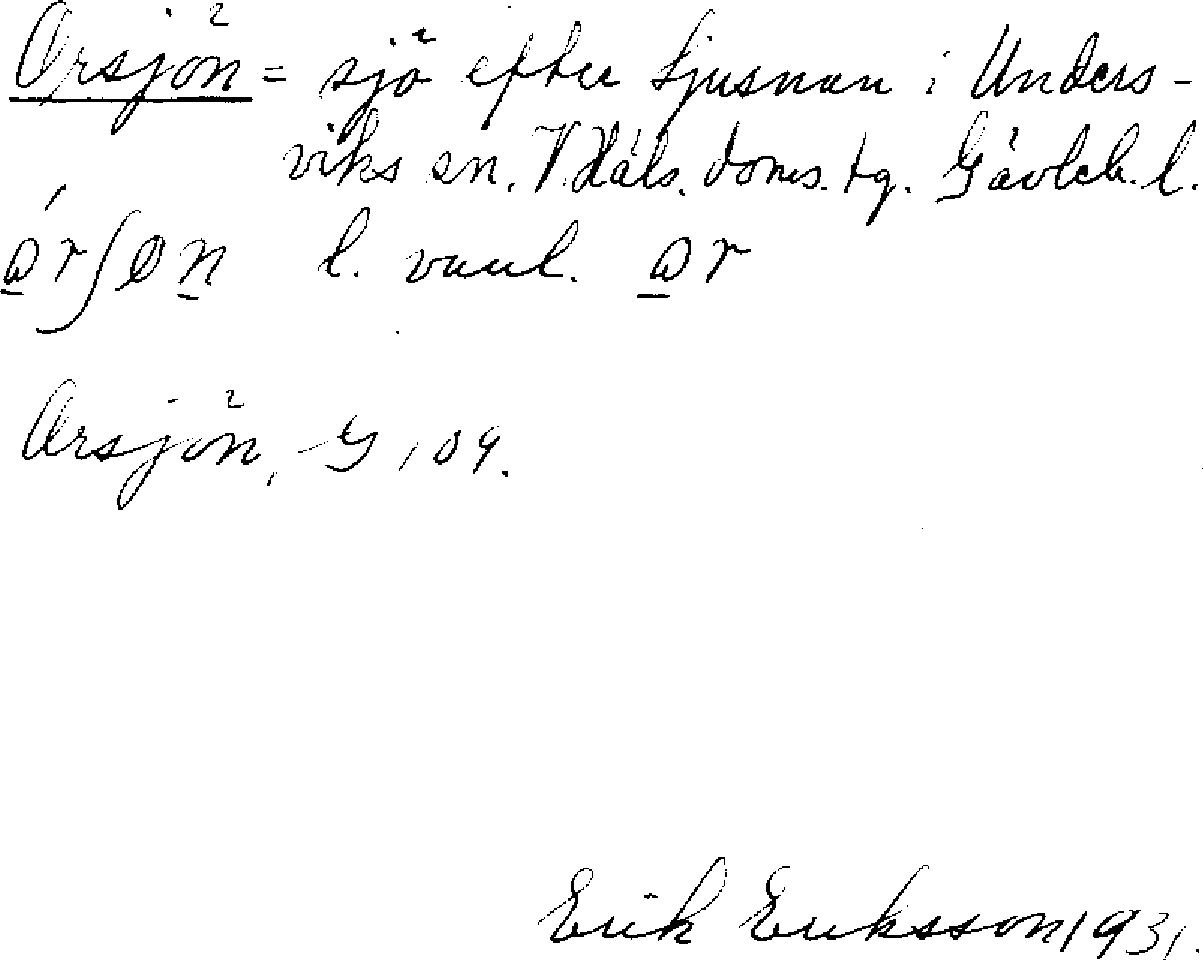 Orsjön = sjö efter Ljusnan i Unders-
viks sn. V Häls. doms. tg. Gävleb. l.
l. vanl.
Orsjön, G, 109.
Erik Eriksson 1931.